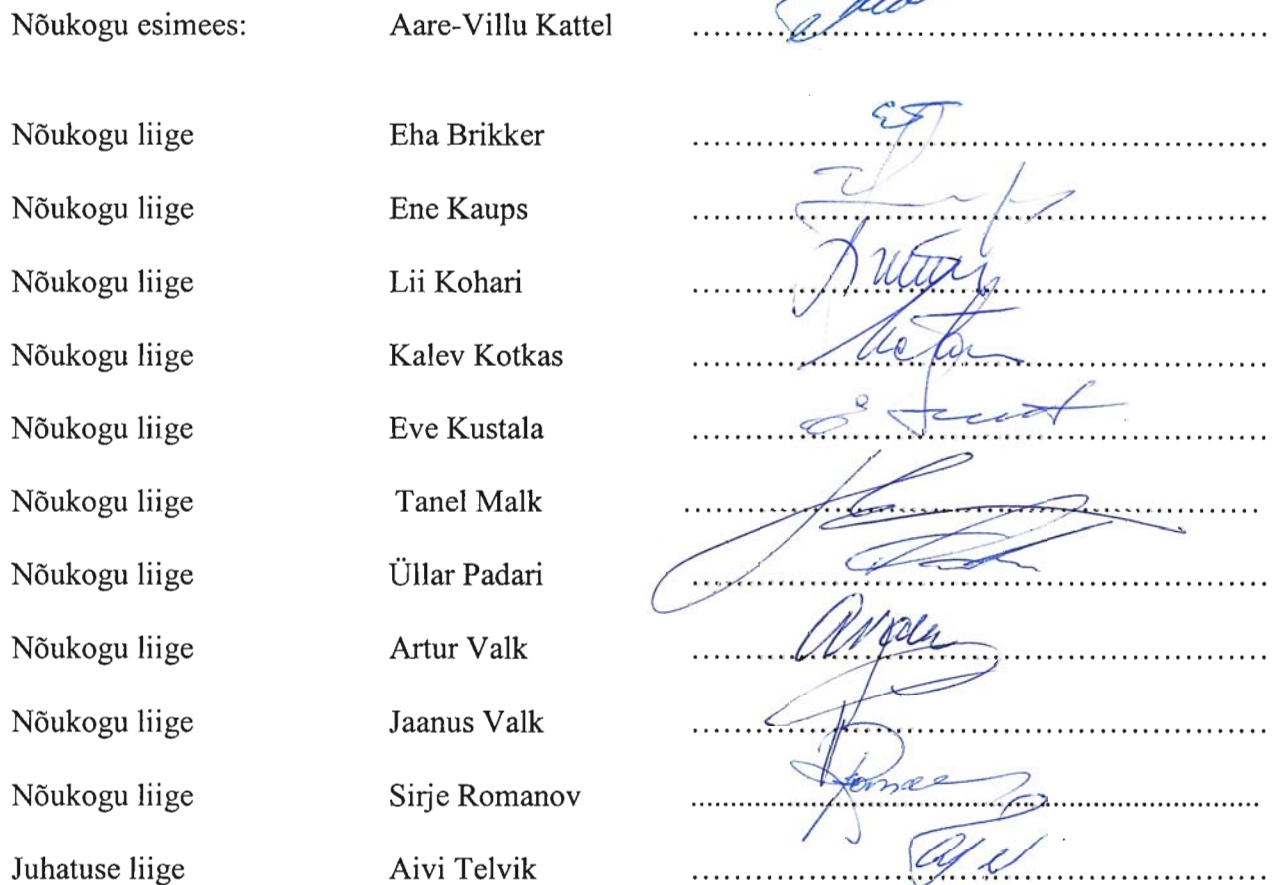 Nõukogu esimees: Aare-Villu Kattel ..........................................................
Nõukogu liige Eha Brikker ..........................................................
Nõukogu liige Ene Kaups ..........................................................
Nõukogu liige Lii Kohari ..........................................................
Nõukogu liige Kalev Kotkas ..........................................................
Nõukogu liige Eve Kustala ..........................................................
Nõukogu liige Tanel Malk ..........................................................
Nõukogu liige Üllar Padari ..........................................................
Nõukogu liige Artur Valk ..........................................................
Nõukogu liige Jaanus Valk ..........................................................
Nõukogu liige Sirje Romanov ..........................................................
Juhatuse liige Aivi Telvik ..........................................................